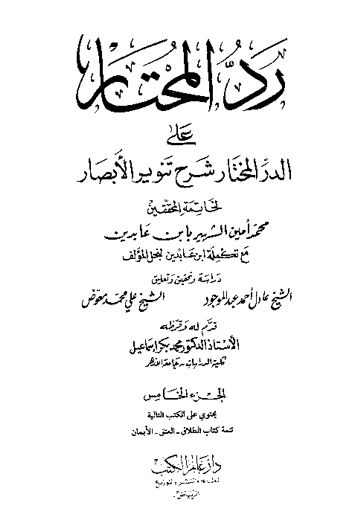 رد المحتار
على
الدر المختار شرح تنوير الأبصار
لخاتمة المحققين
محمد أمين الشهير بابن عابدين
مع تكملة ابن عابدين لنجل المؤلف
دراسة وتحقيق وتعليق
الشيخ عادل أحمد عبد الموجود الشيخ علي محمد معوض
قدم له وقرظه
الأستاذ الدكتور محمد بكر إسماعيل
كلية الدراسات - جامعة الأزهر
الجزء الخامس
يحتوي على الكتب التالية
تتمة كتاب الطلاق - العتق - الأيمان
دار عالم الكتب
للطباعة والنشر والتوزيع
الرياض